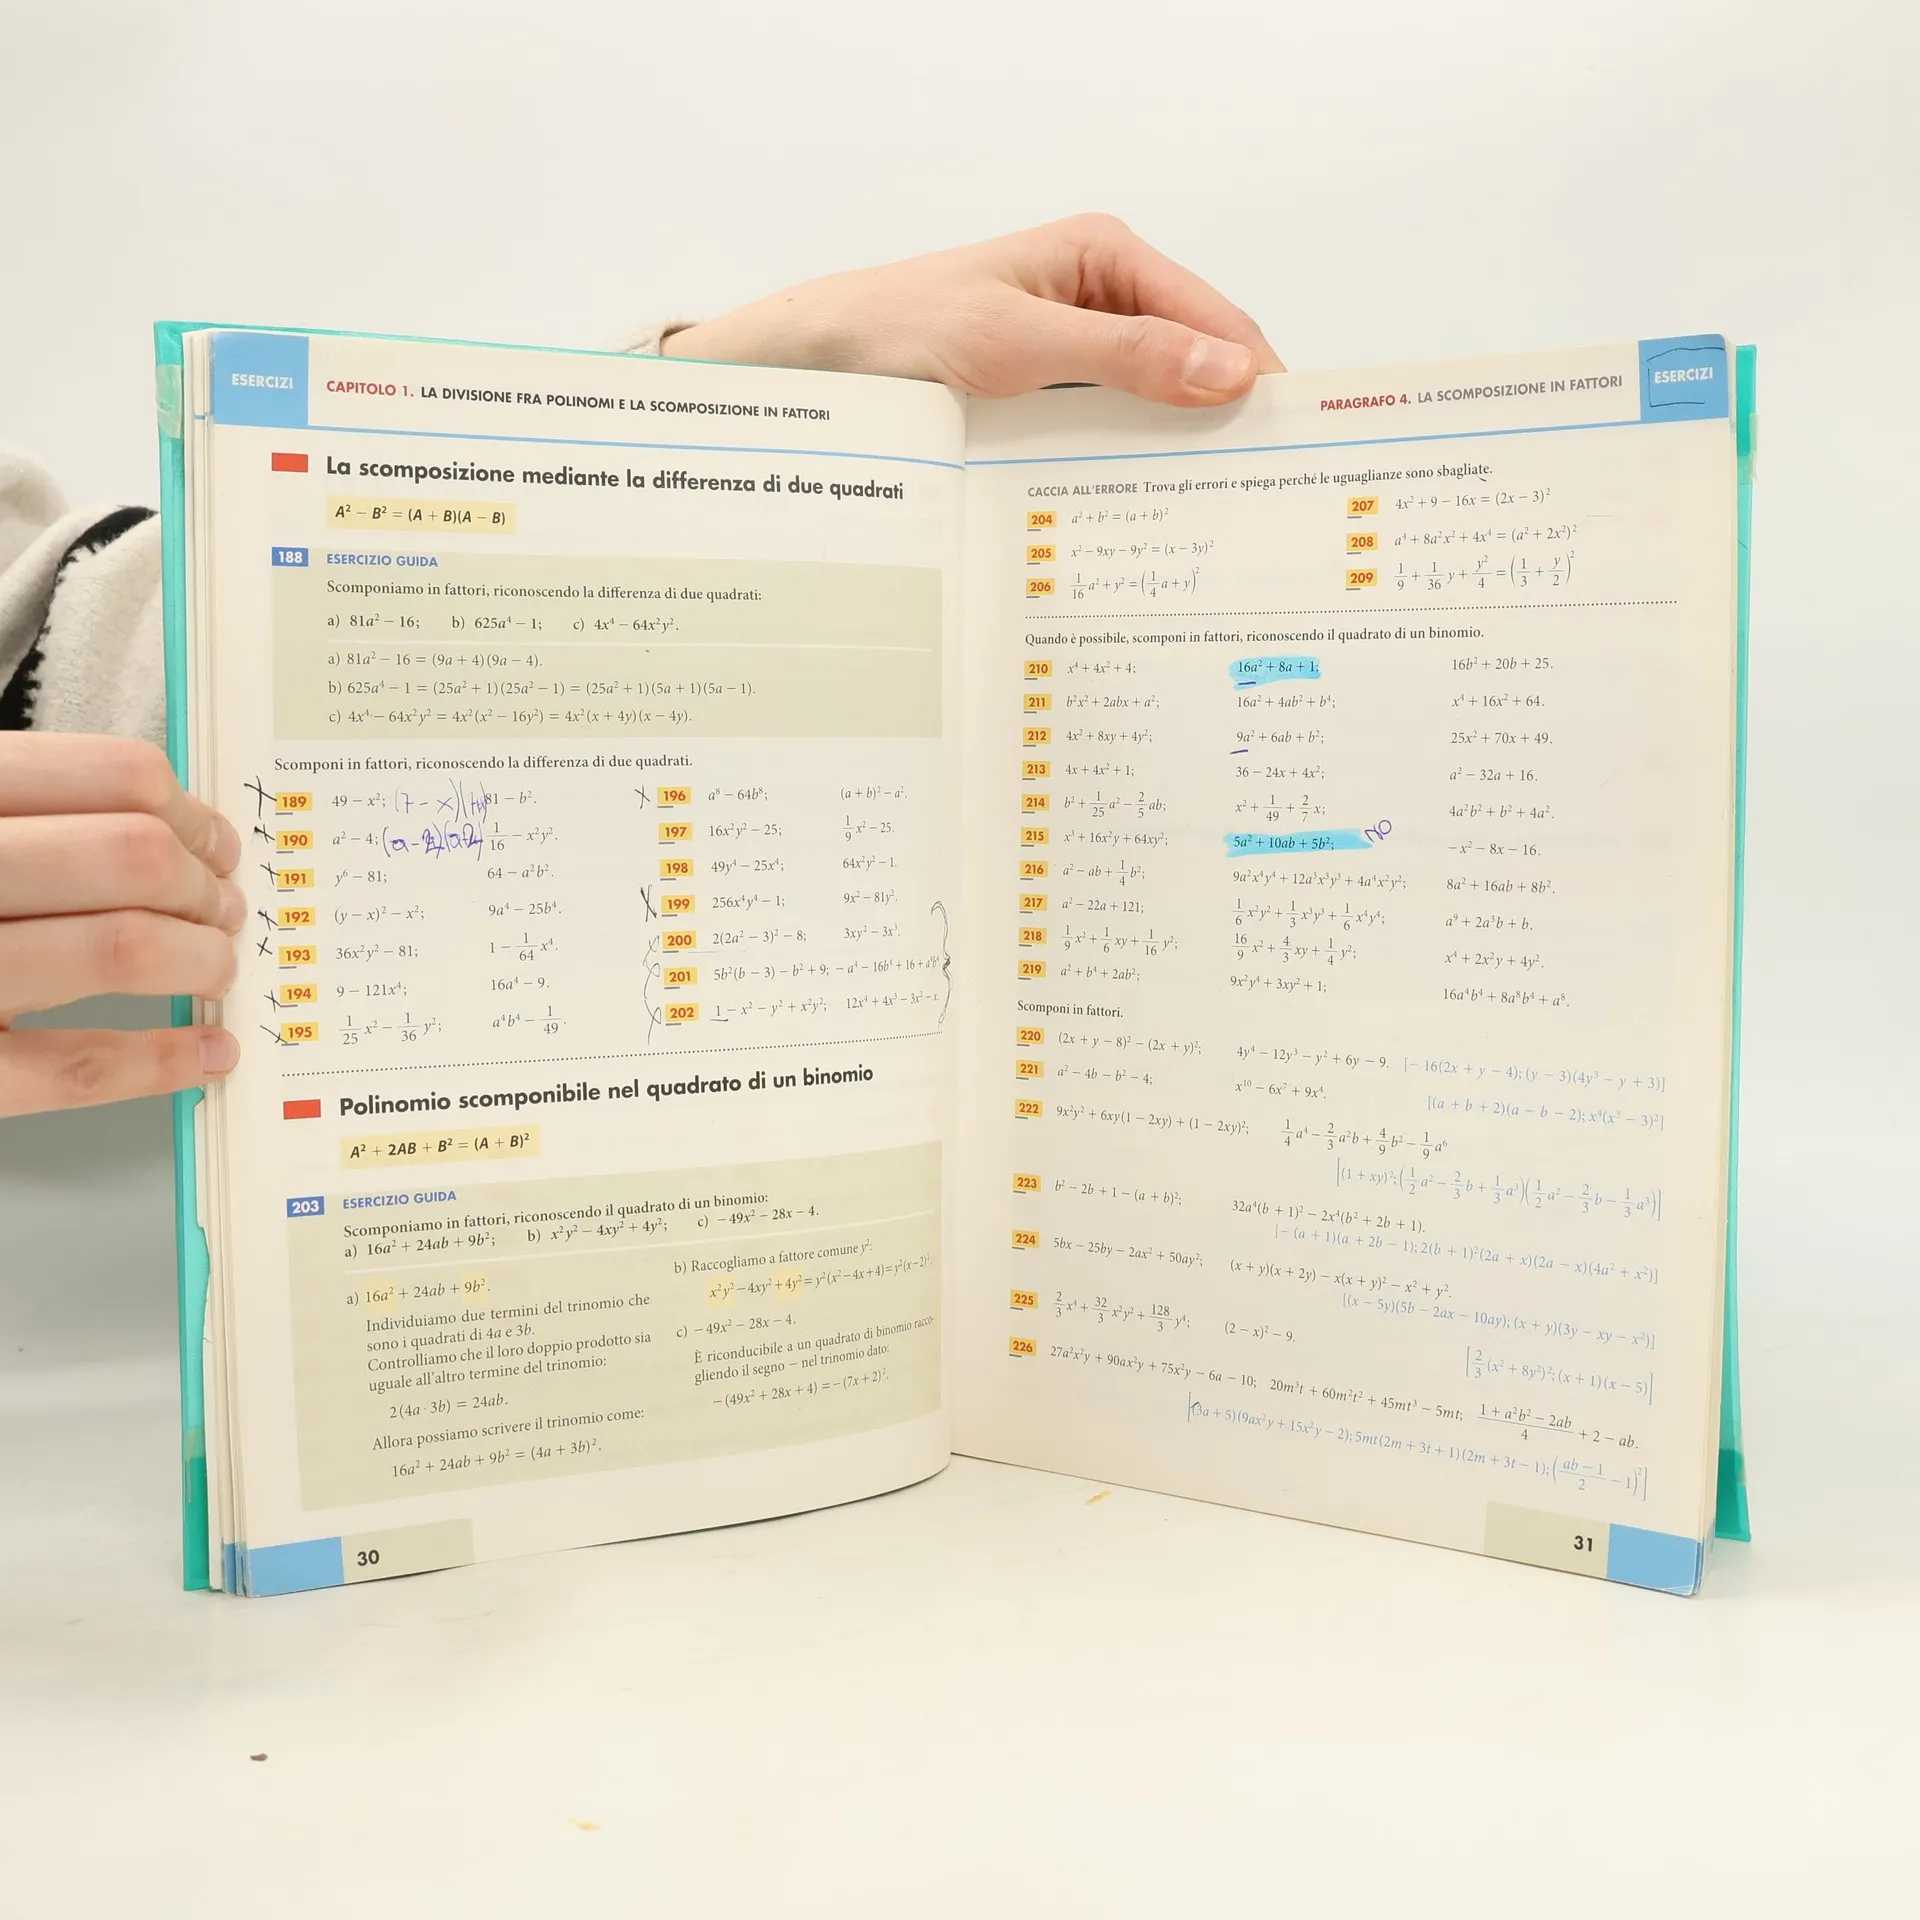 ESERCIZI
CAPITOLO 1. LA DIVISIONE FRA POLINOMI E LA SCOMPOSIZIONE IN FATTORI
La scomposizione mediante la differenza di due quadrati
A² − B² = (A + B)(A − B)
188 ESERCIZIO GUIDA
Scomponiamo in fattori, riconoscendo la differenza di due quadrati:
a) 81a² − 16; b) 625a⁴ − 1; c) 4x⁴ − 64x²y².
a) 81a² − 16 = (9a + 4)(9a − 4).
b) 625a⁴ − 1 = (25a² + 1)(25a² − 1) = (25a² + 1)(5a + 1)(5a − 1).
c) 4x⁴ − 64x²y² = 4x²(x² − 16y²) = 4x²(x + 4y)(x − 4y).
Scomponi in fattori, riconoscendo la differenza di due quadrati.
189 49 − x²; (7 − x) 81 − b².
190 a² − 4; (a − 2)(a+2) 1/16 − x²y².
191 y⁶ − 81; 64 − a²b².
192 (y − x)² − x²; 9a⁴ − 25b⁴.
193 36x²y² − 81; 1 − 1/64 x⁴.
194 9 − 121x⁴; 16a⁴ − 9.
195 1/25 x² − 1/36 y²; a⁴b⁴ − 1/49.
196 a⁸ − 64b⁸; (a + b)² − a².
197 16x²y² − 25; 1/9 x² − 25.
198 49y⁴ − 25x⁴; 64x²y² − 1.
199 256x⁴y⁴ − 1; 9x² − 81y².
200 2(2a² − 3)² − 8; 3xy² − 3x³.
201 5b²(b − 3) − b² + 9; − a⁴ − 16b⁴ + 16 + a⁴b⁴
202 1 − x² − y² + x²y²; 12x⁴ + 4x³ − 3x² − x.
Polinomio scomponibile nel quadrato di un binomio
A² + 2AB + B² = (A + B)²
203 ESERCIZIO GUIDA
Scomponiamo in fattori, riconoscendo il quadrato di un binomio:
a) 16a² + 24ab + 9b²; b) x²y² − 4xy² + 4y²; c) − 49x² − 28x − 4.
a) 16a² + 24ab + 9b².
Individuiamo due termini del trinomio che
sono i quadrati di 4a e 3b.
Controlliamo che il loro doppio prodotto sia
uguale all'altro termine del trinomio:
2(4a · 3b) = 24ab.
Allora possiamo scrivere il trinomio come:
16a² + 24ab + 9b² = (4a + 3b)².
b) Raccogliamo a fattore comune y²:
x²y² − 4xy² + 4y² = y²(x² − 4x + 4) = y²(x − 2)².
c) − 49x² − 28x − 4.
È riconducibile a un quadrato di binomio racco-
gliendo il segno − nel trinomio dato:
− (49x² + 28x + 4) = − (7x + 2)².
30
PARAGRAFO 4. LA SCOMPOSIZIONE IN FATTORI
ESERCIZI
CACCIA ALL'ERRORE Trova gli errori e spiega perché le uguaglianze sono sbagliate.
204 a² + b² = (a + b)²
205 x² − 9xy − 9y² = (x − 3y)²
206 1/16 a² + y² = (1/4 a + y)²
207 4x² + 9 − 16x = (2x − 3)²
208 a⁴ + 8a²x² + 4x⁴ = (a² + 2x²)²
209 1/9 + 1/36 y + y²/4 = (1/3 + y/2)²
Quando è possibile, scomponi in fattori, riconoscendo il quadrato di un binomio.
210 x⁴ + 4x² + 4; 16a² + 8a + 1; 16b² + 20b + 25.
211 b²x² + 2abx + a²; 16a² + 4ab² + b⁴; x⁴ + 16x² + 64.
212 4x² + 8xy + 4y²; 9a² + 6ab + b²; 25x² + 70x + 49.
213 4x + 4x² + 1; 36 − 24x + 4x²; a² − 32a + 16.
214 b² + 1/25 a² − 2/5 ab; x² + 1/49 + 2/7 x; 4a²b² + b² + 4a².
215 x³ + 16x²y + 64xy²; 5a² + 10ab + 5b²; NO − x² − 8x − 16.
216 a² − ab + 1/4 b²; 9a²x⁴y⁴ + 12a³x³y³ + 4a⁴x²y²; 8a² + 16ab + 8b².
217 a² − 22a + 121; 1/6 x²y² + 1/3 x³y³ + 1/6 x⁴y⁴; a⁹ + 2a³b + b.
218 1/9 x² + 1/6 xy + 1/16 y²; 16/9 x² + 4/3 xy + 1/4 y²; x⁴ + 2x²y + 4y².
219 a² + b⁴ + 2ab²; 9x²y⁴ + 3xy² + 1; 16a⁴b⁴ + 8a⁸b⁴ + a⁸.
Scomponi in fattori.
220 (2x + y − 8)² − (2x + y)²; 4y⁴ − 12y³ − y² + 6y − 9. [− 16(2x + y − 4); (y − 3)(4y³ − y + 3)]
221 a² − 4b − b² − 4; x¹⁰ − 6x⁷ + 9x⁴. [(a + b + 2)(a − b − 2); x⁴(x³ − 3)²]
222 9x²y² + 6xy(1 − 2xy) + (1 − 2xy)²; 1/4 a⁴ − 2/3 a²b + 4/9 b² − 1/9 a⁶
[(1 + xy)²; (1/2 a² − 2/3 b + 1/3 a³)(1/2 a² − 2/3 b − 1/3 a³)]
223 b² − 2b + 1 − (a + b)²; 32a⁴(b + 1)² − 2x⁴(b² + 2b + 1).
[− (a + 1)(a + 2b − 1); 2(b + 1)²(2a + x)(2a − x)(4a² + x²)]
224 5bx − 25by − 2ax² + 50ay²; (x + y)(x + 2y) − x(x + y)² − x² + y².
[(x − 5y)(5b − 2ax − 10ay); (x + y)(3y − xy − x²)]
225 2/3 x⁴ + 32/3 x²y² + 128/3 y⁴; (2 − x)² − 9.
[2/3 (x² + 8y²)²; (x + 1)(x − 5)]
226 27a²x²y + 90ax²y + 75x²y − 6a − 10; 20m³t + 60m²t² + 45mt³ − 5mt; (1 + a²b² − 2ab)/4 + 2 − ab.
[(3a + 5)(9ax²y + 15x²y − 2); 5mt(2m + 3t + 1)(2m + 3t − 1); ((ab − 1)/2 − 1)²]
31